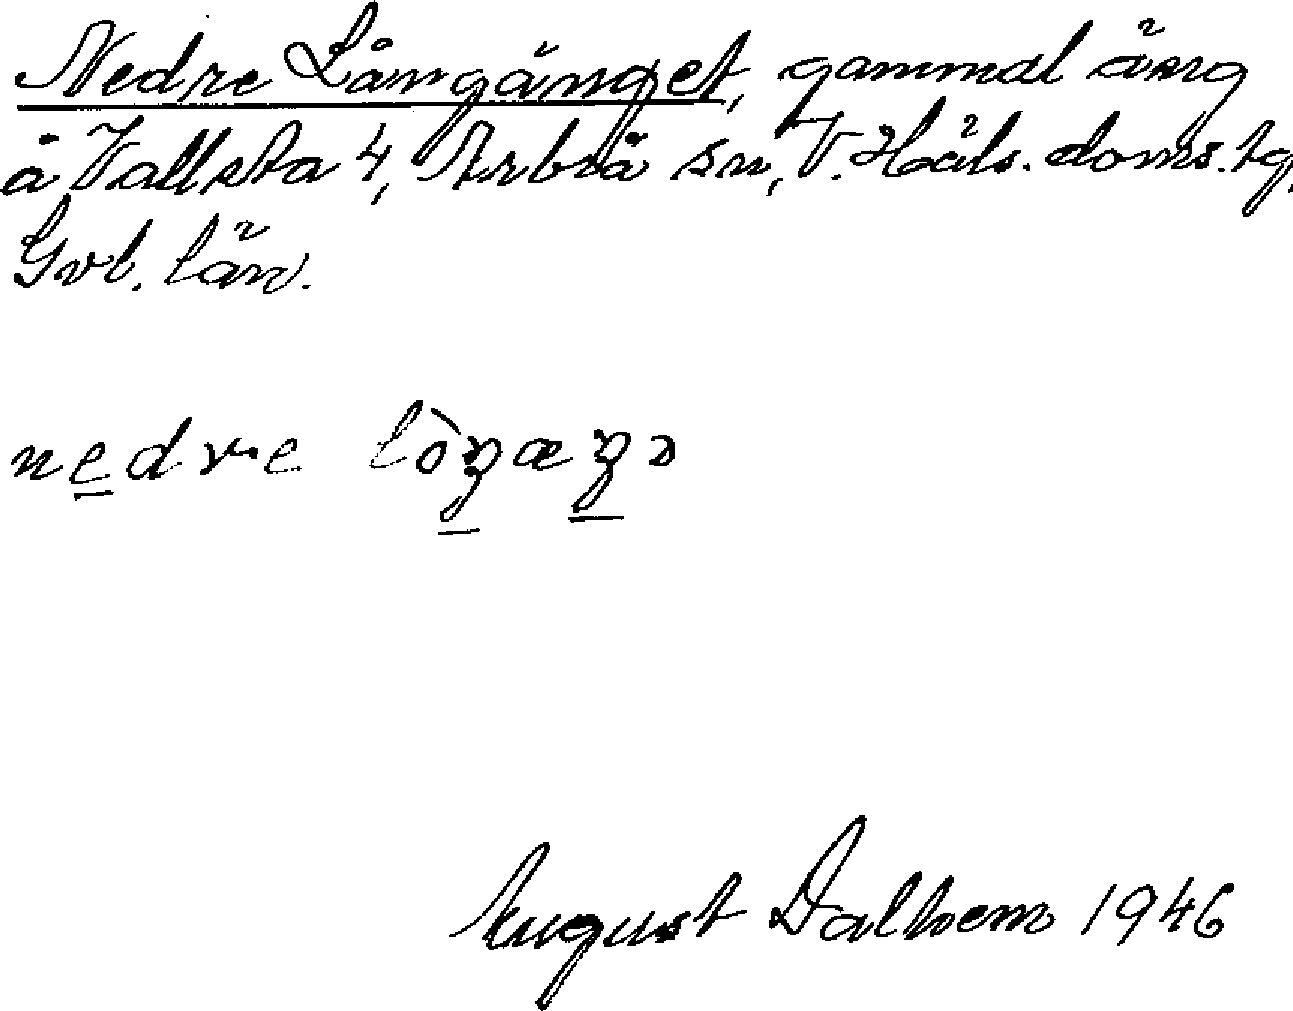 Nedre Långänget, gammal äng
å Vallsta 4, Arbrå sn, V. Häls. doms. tg,
Gvl. län.
nedre lòŋæŋə
August Dalhem 1946